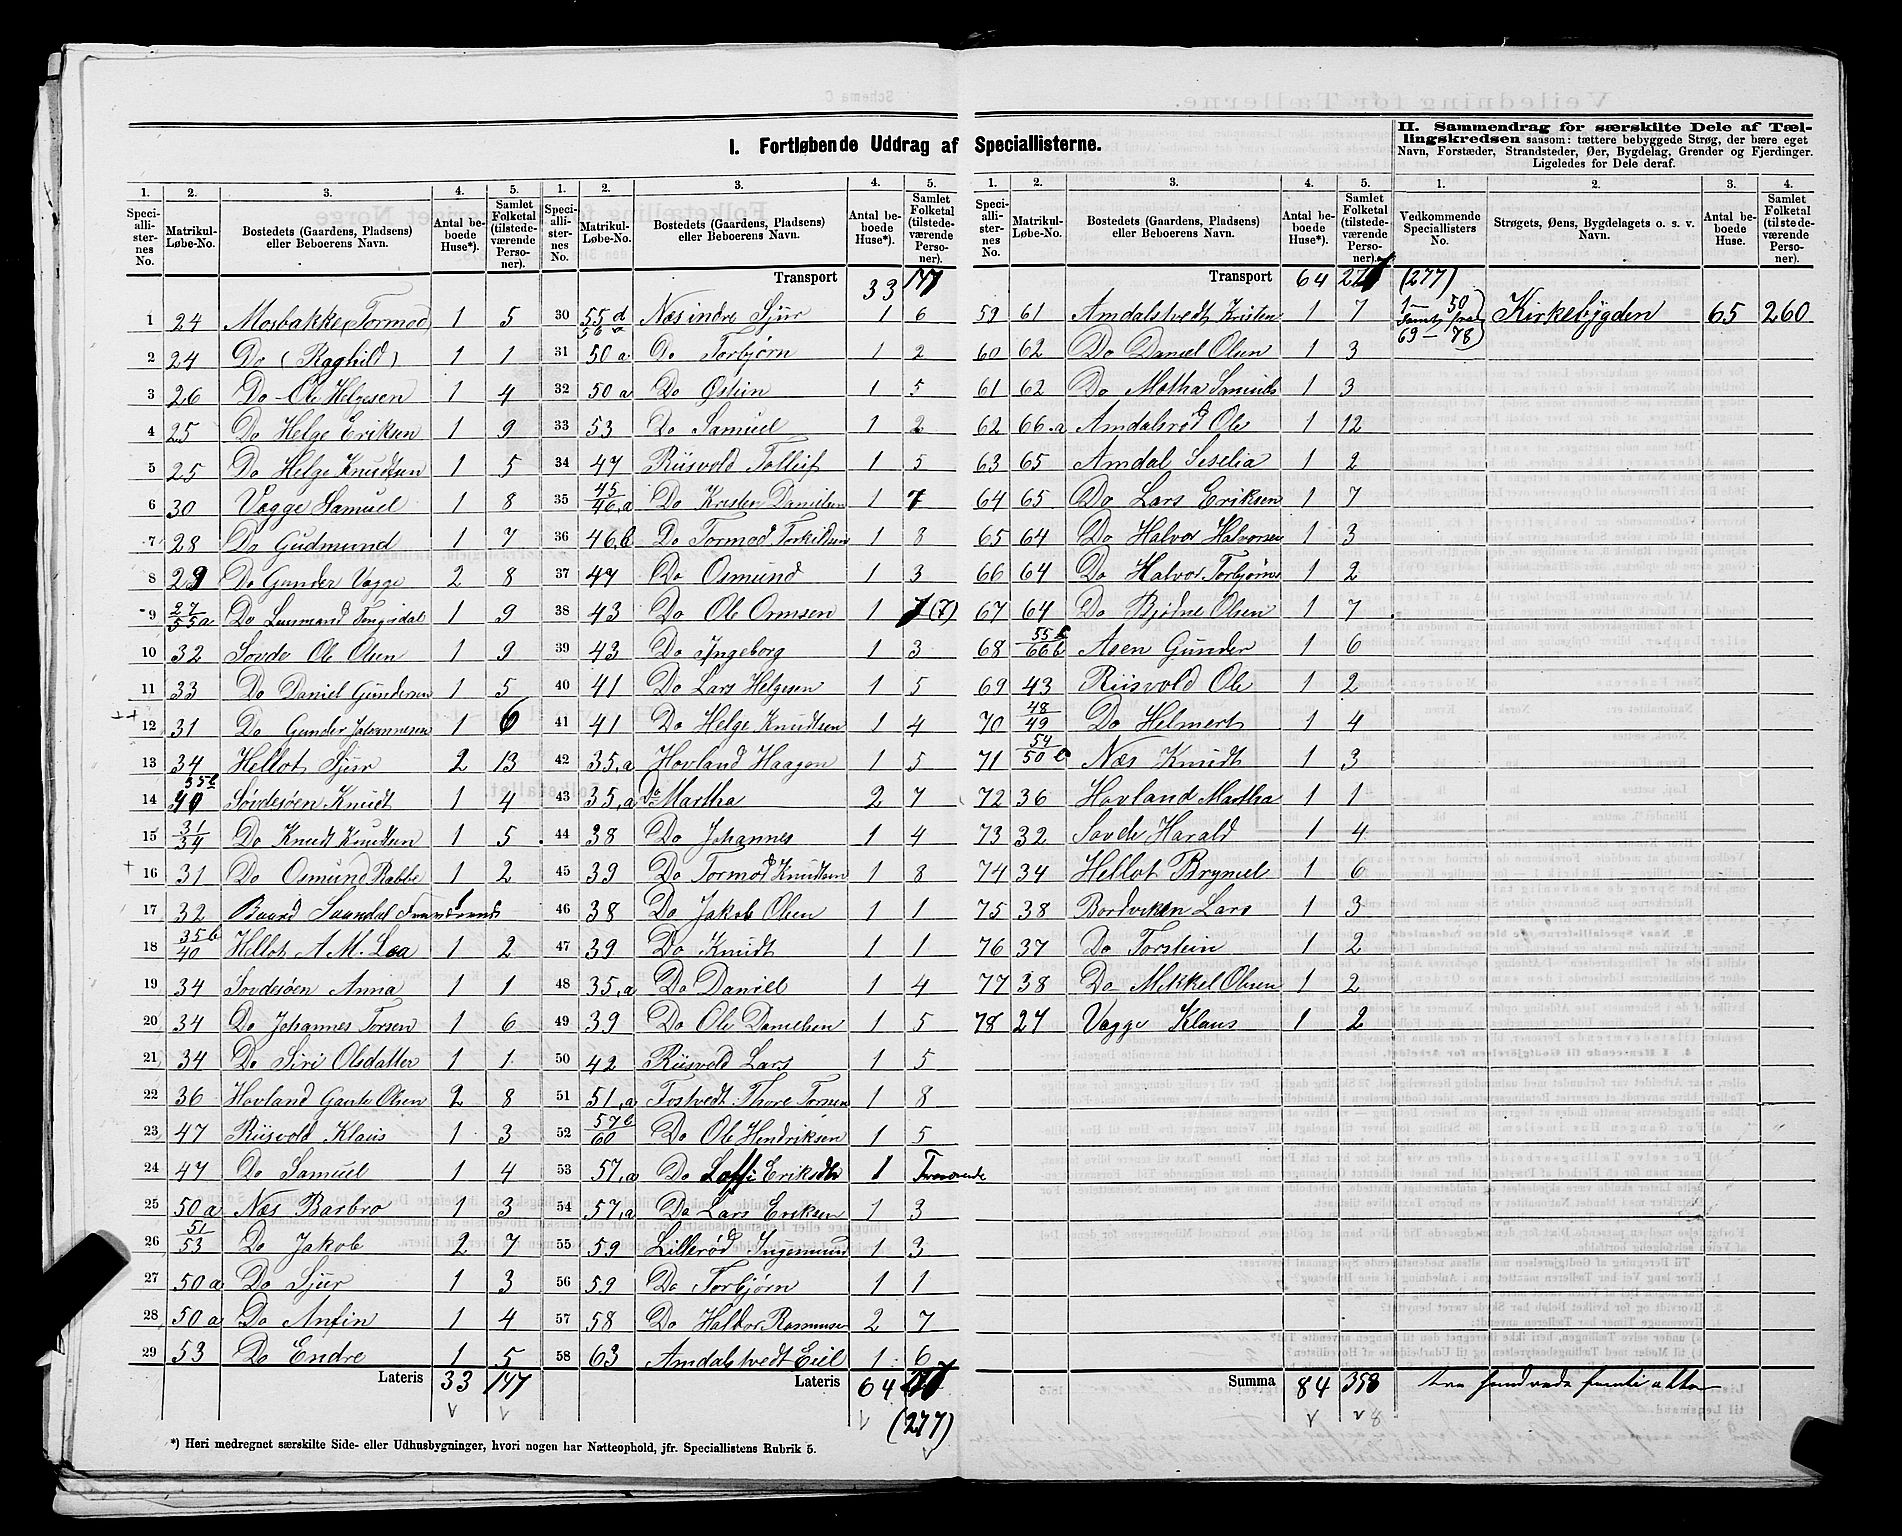 I. Fortløbende Uddrag af Speciallisterne.
II. Sammendrag for særskilte Dele af Tællingskredsen saasom: tættere bebyggede Strøg, der bære eget Navn, Forstæder, Strandsteder, Øer, Bygdelag, Grender og Fjerdinger. Ligeledes for Dele deraf.
1. 2. 3. 4. 5.
Speciallisternes No. Matrikul-Løbe-No. Bostedets (Gaardens, Pladsens) eller Beboerens Navn. Antal beboede Huse*). Samlet Folketal (tilstedeværende Personer).
1 24 Mosbakke, Tormod 1 5
2 24 Do (Raghild) 1 1
3 26 Do Ole Helgesen 1 4
4 25 Do Helge Eriksen 1 9
5 25 Do Helge Knudsen 1 5
6 30 Vagge Samuel 1 8
7 28 Do Gudmund 1 7
8 29 Do Gunder Vagge 2 8
9 27/55a Do 1 9
10 32 Sovde Ole Olsen 1 9
11 33 Do Daniel Gundersen 1 5
12 31 Do Gunder Johannesen 1 6
13 34 Hellot Sjur 2 13
14 35b Søvdesøen Knudt 1 4
15 31/34 Do Knudt Knudsen 1 5
16 31 Do Osmund Rabbe 1 2
17 32 Baard Saandal Fraværende
18 35b/40 Hellot A M. Loa 1 2
19 34 Sovdesøen Anna 1 1
20 34 Do Johannes Torsen 1 6
21 34 Do Siri Olsdatter 1 1
22 36 Hovland Gaute Olsen 2 8
23 47 Riisvold Klaus 1 3
24 47 Do Samuel 1 4
25 50a Næs Barbro 1 3
26 51/53 Do Jakob 2 7
27 50a Do Sjur 1 3
28 50a Do Anfin 1 4
29 53 Do Endre 1 5
Lateris 33 147
1. 2. 3. 4. 5.
Speciallisternes No. Matrikul-Løbe-No. Bostedets (Gaardens, Pladsens) eller Beboerens Navn. Antal beboede Huse*). Samlet Folketal (tilstedeværende Personer).
Transport 33 147
30 55d 56a Næs indre Sjur 1 6
31 50a Do Torbjørn 1 2
32 50a Do Østein 1 5
33 53 Do Samuel 1 2
34 47 Riisvold Tolleif 1 5
35 45/46,a Do Kristen Danielsen 1 7
36 46,b Do Tormod Torkildsen 1 8
37 47 Do Osmund 1 3
38 43 Do Ole Ormsen 1 7 (7)
39 43 Do Ingeborg 1 3
40 41 Do Lars Helgesen 1 5
41 41 Do Helge Knudtsen 1 4
42 35,a Hovland Haagen 1 5
43 35,a Do Martha 2 7
44 38 Do Johannes 1 4
45 39 Do Tormod Knudtsen 1 8
46 38 Do Jakob Olsen 1 1
47 39 Do Knudt 1 1
48 35,a Do Daniel 1 4
49 39 Do Ole Danielsen 1 5
50 42 Riisvold Lars 1 5
51 51,a Tostvedt Thore Torsen 1 8
52 57b/60 Do Ole Hendriksen 1 5
53 57,a Do Eriksdtr 1 Fraværende
54 57,a Do Lars Eriksen 1 3
55 59 Lillerød Ingemund 1 3
56 59 Do Torbjørn 1 1
57 58 Do Halvor Rasmusen 2 7
58 63 Amdalstvedt Eiel 1 6
Lateris 64 277
(277)
*) Heri medregnet særskilte Side- eller Udhusbygninger, hvori nogen har Natteophold, jfr. Speciallistens Rubrik 5.
1. 2. 3. 4. 5.
Speciallisternes No. Matrikul-Løbe-No. Bostedets (Gaardens, Pladsens) eller Beboerens Navn. Antal beboede Huse*). Samlet Folketal (tilstedeværende Personer).
Transport 64 277 (277)
59 61 Amdalstvedt Kristen 1 7
60 62 Do Daniel Olsen 1 3
61 62 Do Motha Samuels 1 3
62 66.a Amdalsrød Ole 1 12
63 65 Amdal Seselia 1 2
64 65 Do Lars Eriksen 1 7
65 64 Do Halvor Halvorsen 1 3
66 64 Do Halvor Torbjørns 1 2
67 64 Do Bjødne Olsen 1 7
68 55c/66b Asen Gunder 1 6
69 43 Riisvold Ole 1 2
70 48/49 Do Helmert 1 4
71 54/50 Næs Knudt 1 3
72 36 Hovland Martha 1 1
73 32 Sovde Harald 1 4
74 34 Hellot Brynel 1 6
75 38 Bordviken Lars 1 3
76 37 Do Torstein 1 2
77 38 Do Mikkel Olsen 1 2
78 27 Vagge Klaus 1 2
Summa 84 358 tre hundrede femti otte
1. 2. 3. 4.
Vedkommende Speciallisters No. Strøgets, Øens, Bygdelagets o. s. v. Navn. Antal beboede Huse. Samlet Folketal (tilstedeværende Personer).
1 — 50 samt fra 69 — 78 Kirkebygden 65 260